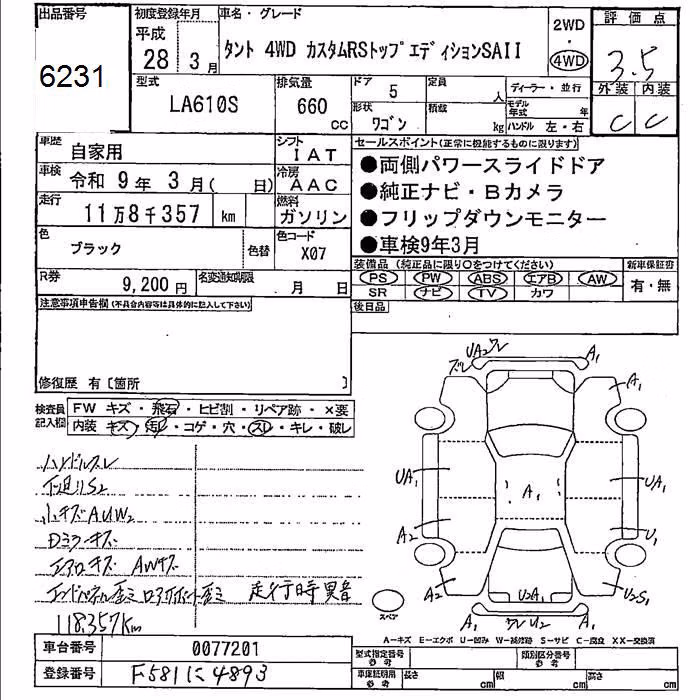 出品番号
6231
初度登録年月
平成
28 3 月
車名・グレード
タント 4WD カスタムRSトップエディションSAII
2WD
・
4WD
評価点
3.5
外装 内装
C C
型式
LA610S
排気量
660
CC
ドア
5
定員
人
形状
ワゴン
積載
kg
ディーラー・並行
モデル年式 年
ハンドル 左・右
車歴
自家用
シフト
IAT
車検
令和 9 年 3 月( 日)
冷房
AAC
走行
11万8千357 km
燃料
ガソリン
色
ブラック
色替
色コード
X07
R券
9,200 円
名変通知期限
月 日
セールスポイント(正常に機能するものに限ります)
●両側パワースライドドア
●純正ナビ・Bカメラ
●フリップダウンモニター
●車検9年3月
装備品 (純正品に限り○をつけてください)
PS PW ABS エアB AW
SR ナビ TV カワ
新車保証書
有・無
後日品
注意事項申告欄(不具合内容等は具体的に記入して下さい)
修復歴 有〔箇所 〕
検査員
記入欄
FW キズ・飛石・ヒビ割・リペア跡・×要
内装 キズ・汚レ・コゲ・穴・スレ・キレ・破レ
ハンドルスレ
下廻りS2
小キズAUW2
Dミラーキズ
エアロキズ AWキズ
走行時異音
118,357km
UA2 ワレ
ズレ
A1
A1
UA1
UA1
A1
A2
U1
A2
U2A1
U2S1
ワレ U2
A1
スペア
A-キズ E-エクボ U-凹み W-補修跡 S-サビ C-腐食 XX-交換済
車台番号
0077201
登録番号
F581に4893
型式指定番号
参考
類別区分番号
参考
車庫証明用
参考
長さ cm
幅 cm
高さ cm